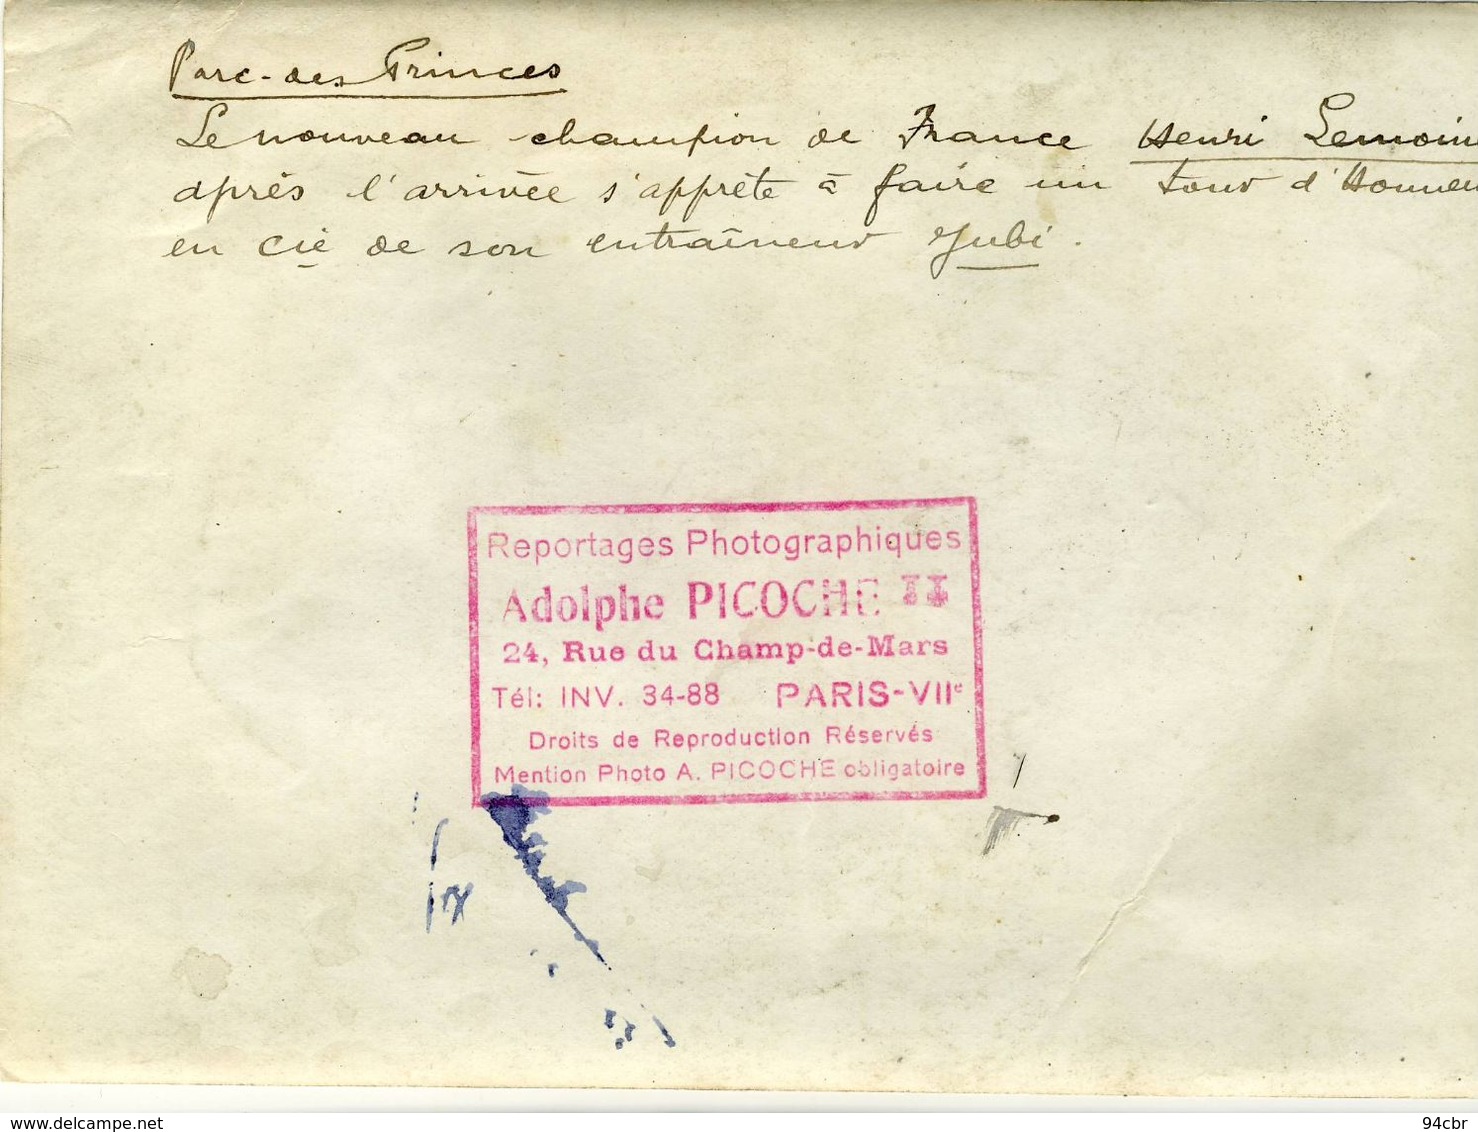 Parc-des Princes
Le nouveau champion de France Henri Lemoin
après l'arrivée s'apprête à faire un tour d'Honneu
en cie de son entraîneur Jubi.
Reportages Photographiques
Adolphe PICOCHE
24, Rue du Champ-de-Mars
Tél: INV. 34-88 PARIS-VIIe
Droits de Reproduction Réservés
Mention Photo A. PICOCHE obligatoire
www.delcampe.net
94cbr